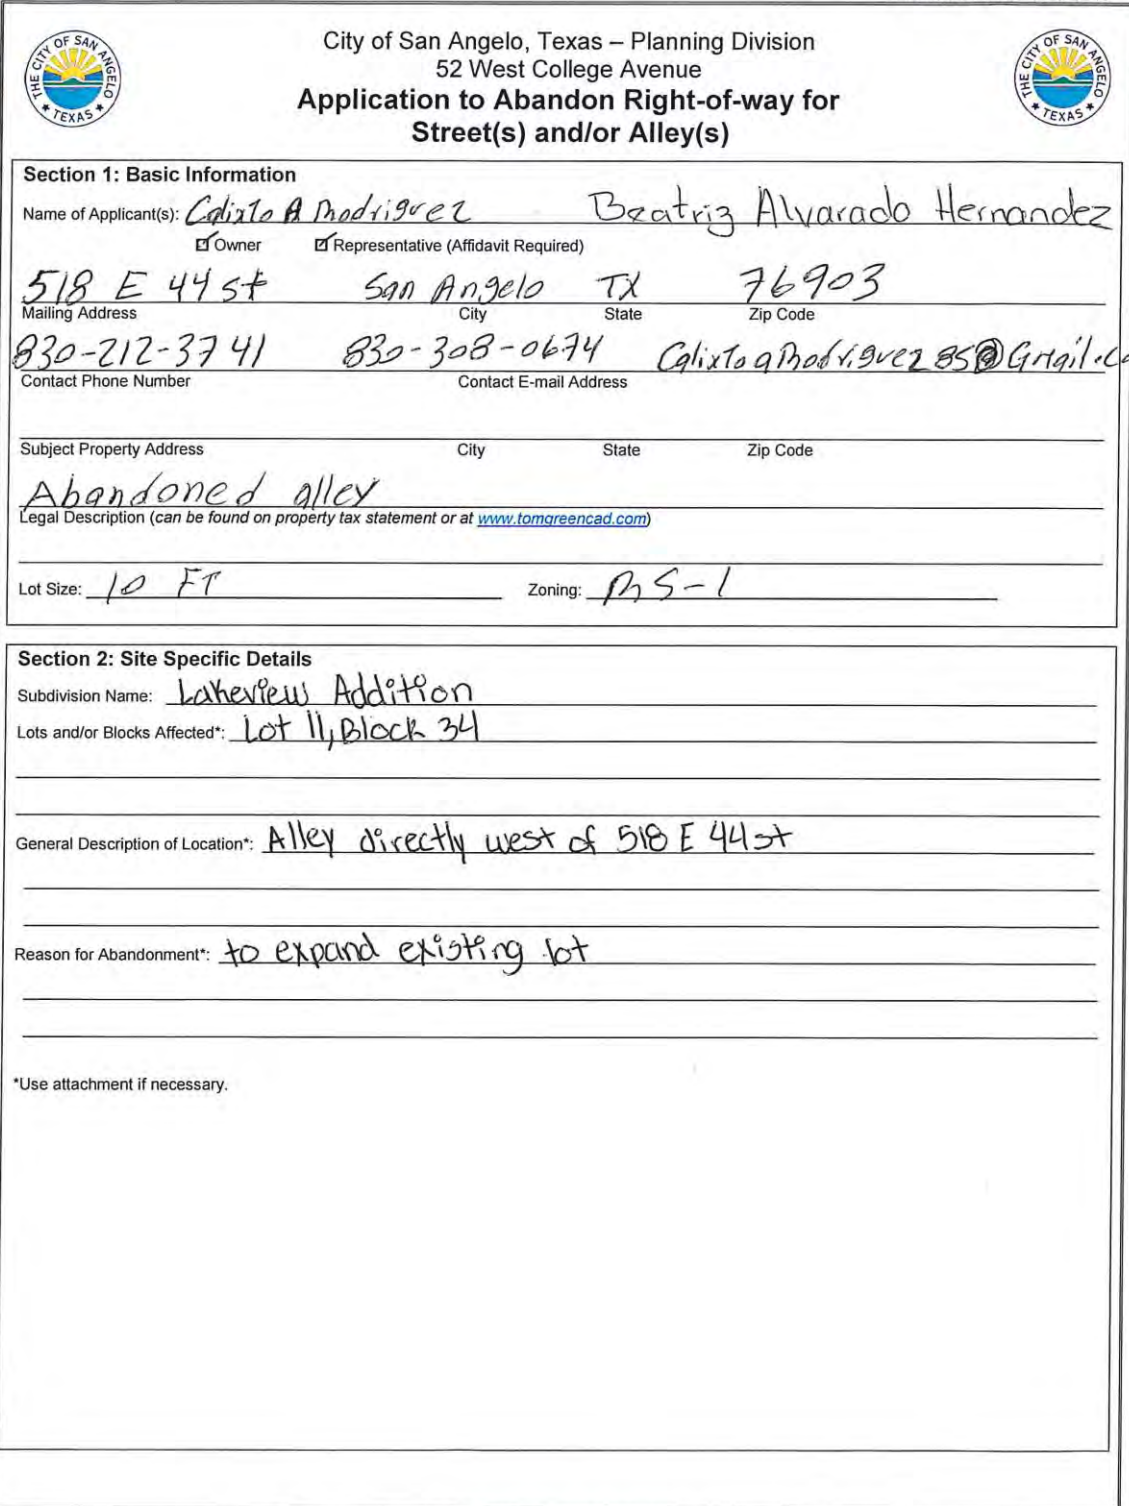 THE CITY OF SAN ANGELO
★ TEXAS ★
City of San Angelo, Texas – Planning Division
52 West College Avenue
Application to Abandon Right-of-way for
Street(s) and/or Alley(s)
THE CITY OF SAN ANGELO
★ TEXAS ★
Section 1: Basic Information
Name of Applicant(s): Calixto A Rodriguez Beatriz Alvarado Hernandez
☑ Owner ☑ Representative (Affidavit Required)
518 E 44 st San Angelo TX 76903
Mailing Address City State Zip Code
830-212-3741 830-308-0674 CalixtoaRodriguez85@Gmail.c
Contact Phone Number Contact E-mail Address
Subject Property Address City State Zip Code
Abandoned alley
Legal Description (can be found on property tax statement or at www.tomgreencad.com)
Lot Size: 10 FT Zoning: RS-1
Section 2: Site Specific Details
Subdivision Name: Lakeview Addition
Lots and/or Blocks Affected*: Lot 11, Block 34
General Description of Location*: Alley directly west of 518 E 44 st
Reason for Abandonment*: to expand existing lot
*Use attachment if necessary.